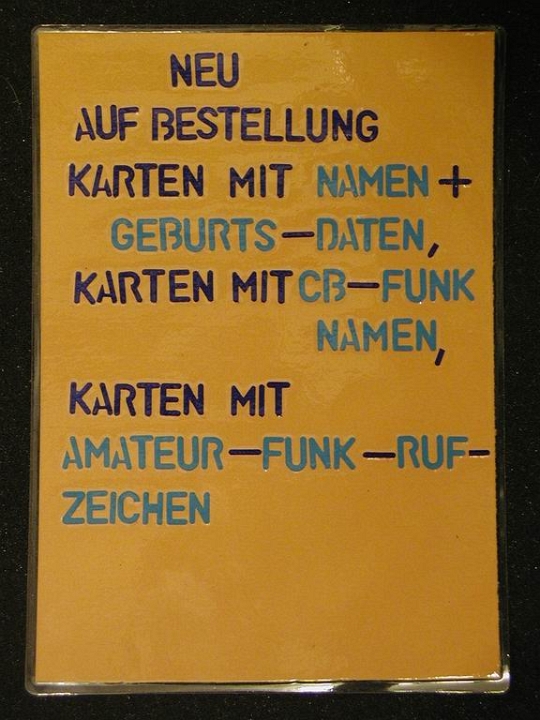 NEU
AUF BESTELLUNG
KARTEN MIT NAMEN +
GEBURTS-DATEN,
KARTEN MIT CB-FUNK
NAMEN,
KARTEN MIT
AMATEUR-FUNK-RUF-
ZEICHEN